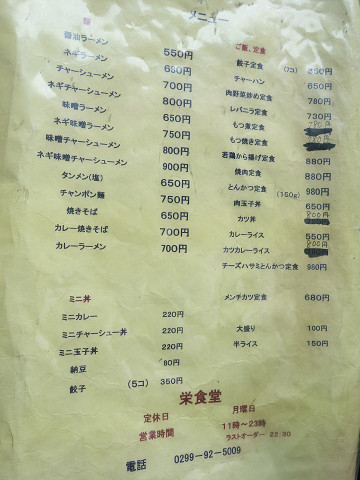 メニュー
麺
醤油ラーメン 550円
ネギラーメン 650円
チャーシューメン 700円
ネギチャーシューメン 800円
味噌ラーメン 650円
ネギ味噌ラーメン 750円
味噌チャーシューメン 800円
ネギ味噌チャーシューメン 900円
タンメン(塩) 650円
チャンポン麺 750円
焼きそば 650円
カレー焼きそば 700円
カレーラーメン 700円
ご飯、定食
餃子定食 (7コ)
チャーハン 650円
肉野菜炒め定食 780円
レバニラ定食 730円
もつ煮定食
もつ焼き定食
若鶏から揚げ定食 880円
焼肉定食 880円
とんかつ定食 (150g) 980円
肉玉子丼 650円
カツ丼 800円
カレーライス 550円
カツカレーライス 800円
チーズハサミとんかつ定食 980円
メンチカツ定食 680円
大盛り 100円
半ライス 150円
ミニ丼
ミニカレー 220円
ミニチャーシュー丼 220円
ミニ玉子丼 220円
納豆 80円
餃子 (5コ) 350円
栄食堂
定休日 月曜日
営業時間 11時～23時
ラストオーダー 22:30
電話 0299-92-5009